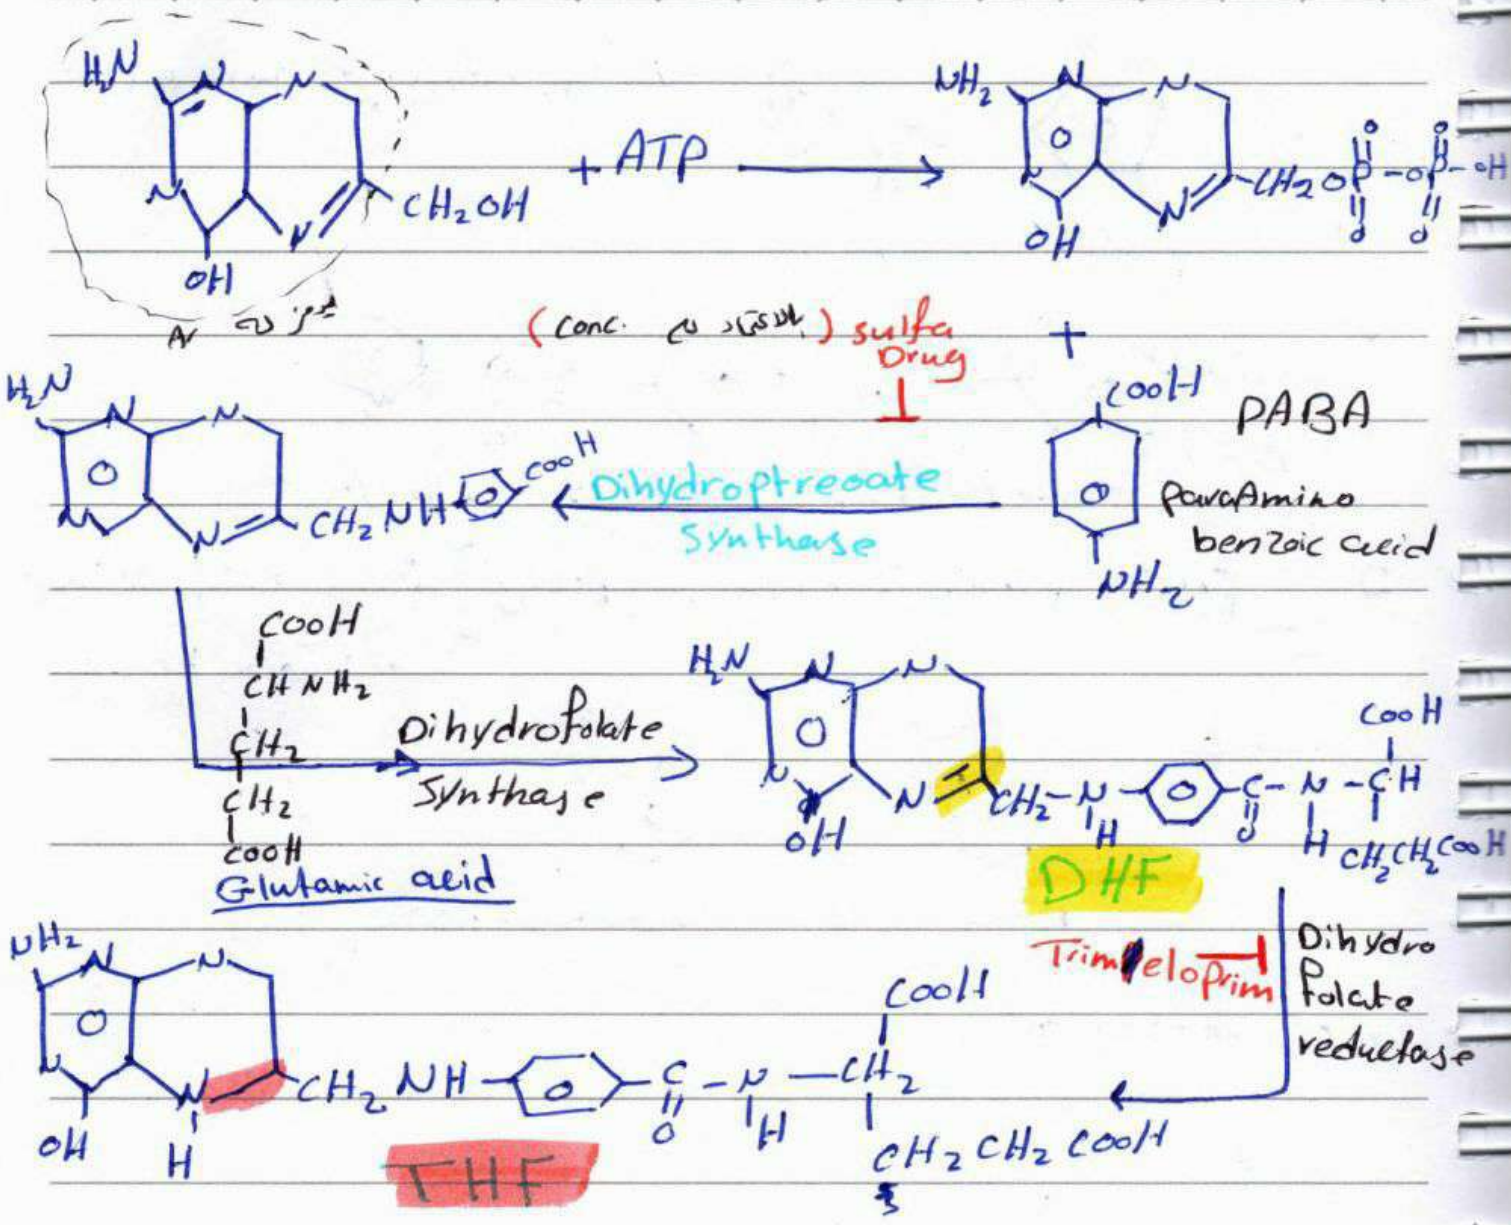 H₂N N N
N N CH₂OH
OH
+ ATP
NH₂ N N
N N CH₂O P -O P -OH
O O
O O
OH
(conc.) sulfa
Drug
+
COOH
PABA
paraAmino
benzoic acid
NH₂
Dihydroptreoate
Synthase
H₂N N N
N N CH₂ NH COOH
COOH
CH NH₂
CH₂
CH₂
COOH
Glutamic acid
Dihydrofolate
Synthase
H₂N N N
N N CH₂-N- -C-N-CH
OH H O H
COOH
CH₂CH₂COOH
DHF
Dihydro
folate
reductase
NH₂ N N
N N CH₂ NH- -C-N-CH₂
OH H O H
COOH
CH₂ CH₂ COOH
THF